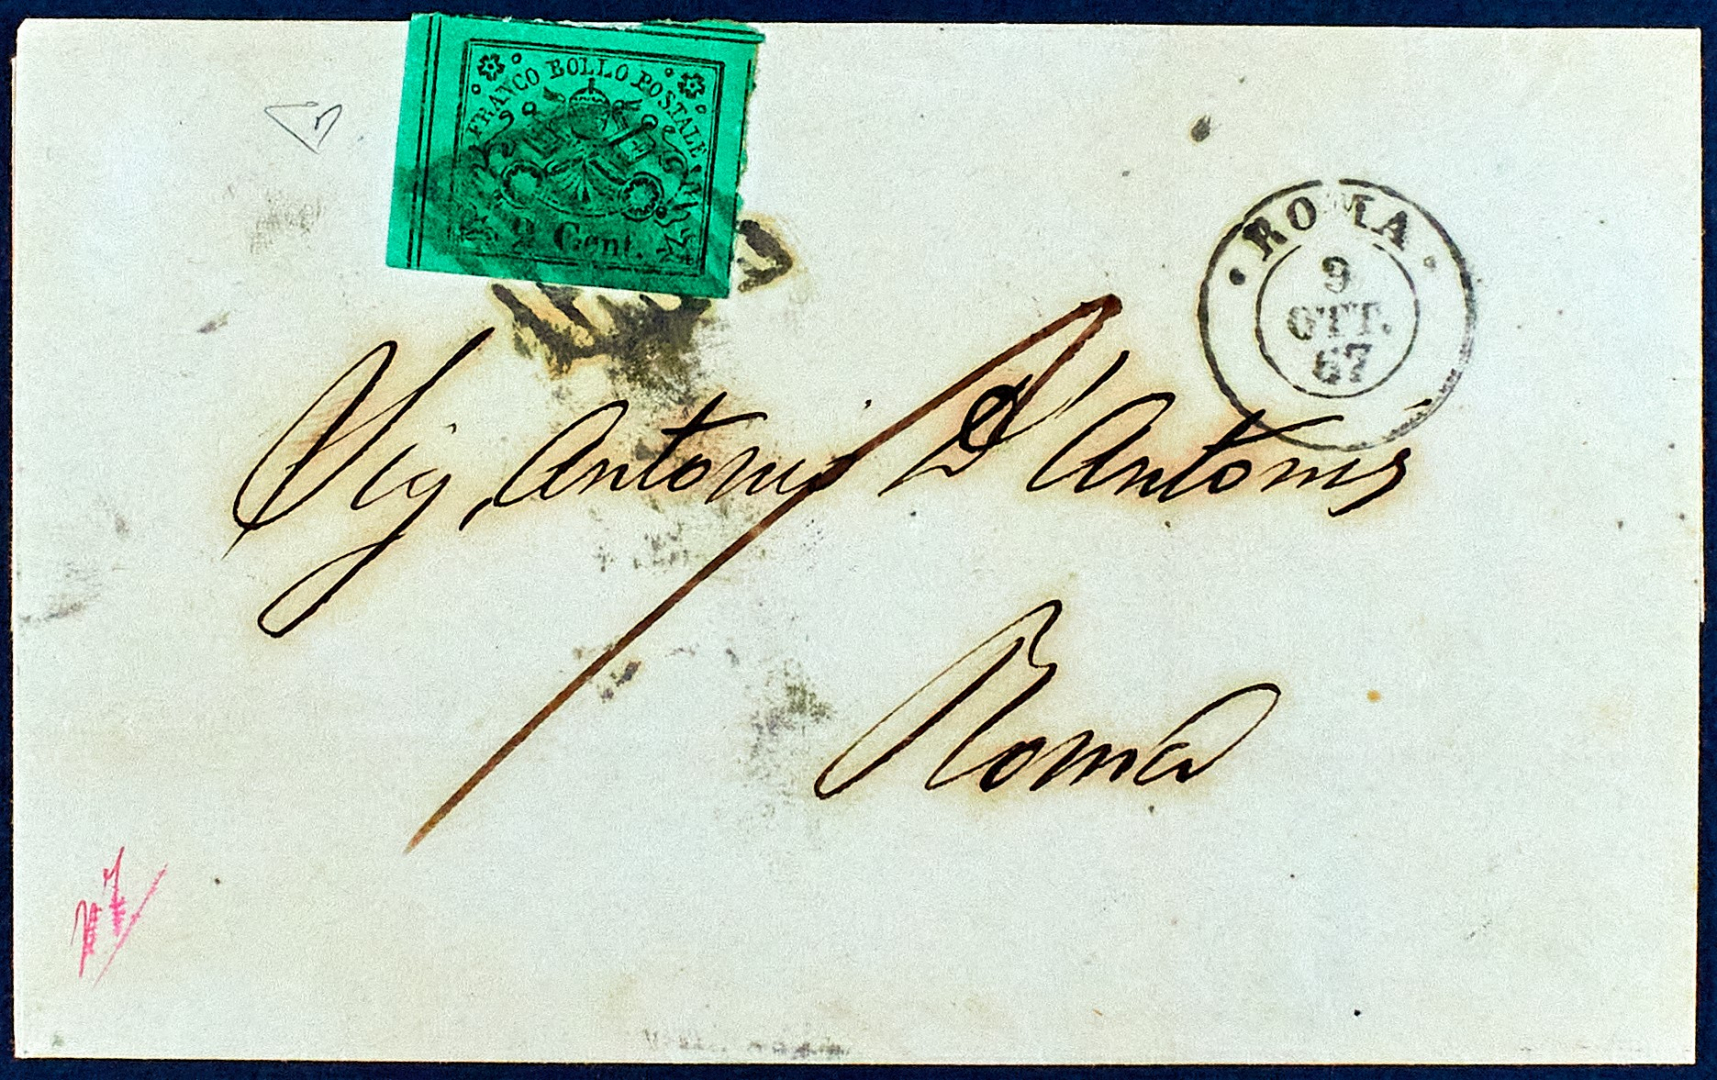 FRANCO BOLLO POSTALE
2 Cent.
ROMA
9
OTT.
67
Sig Antonio D'Antoni
Roma